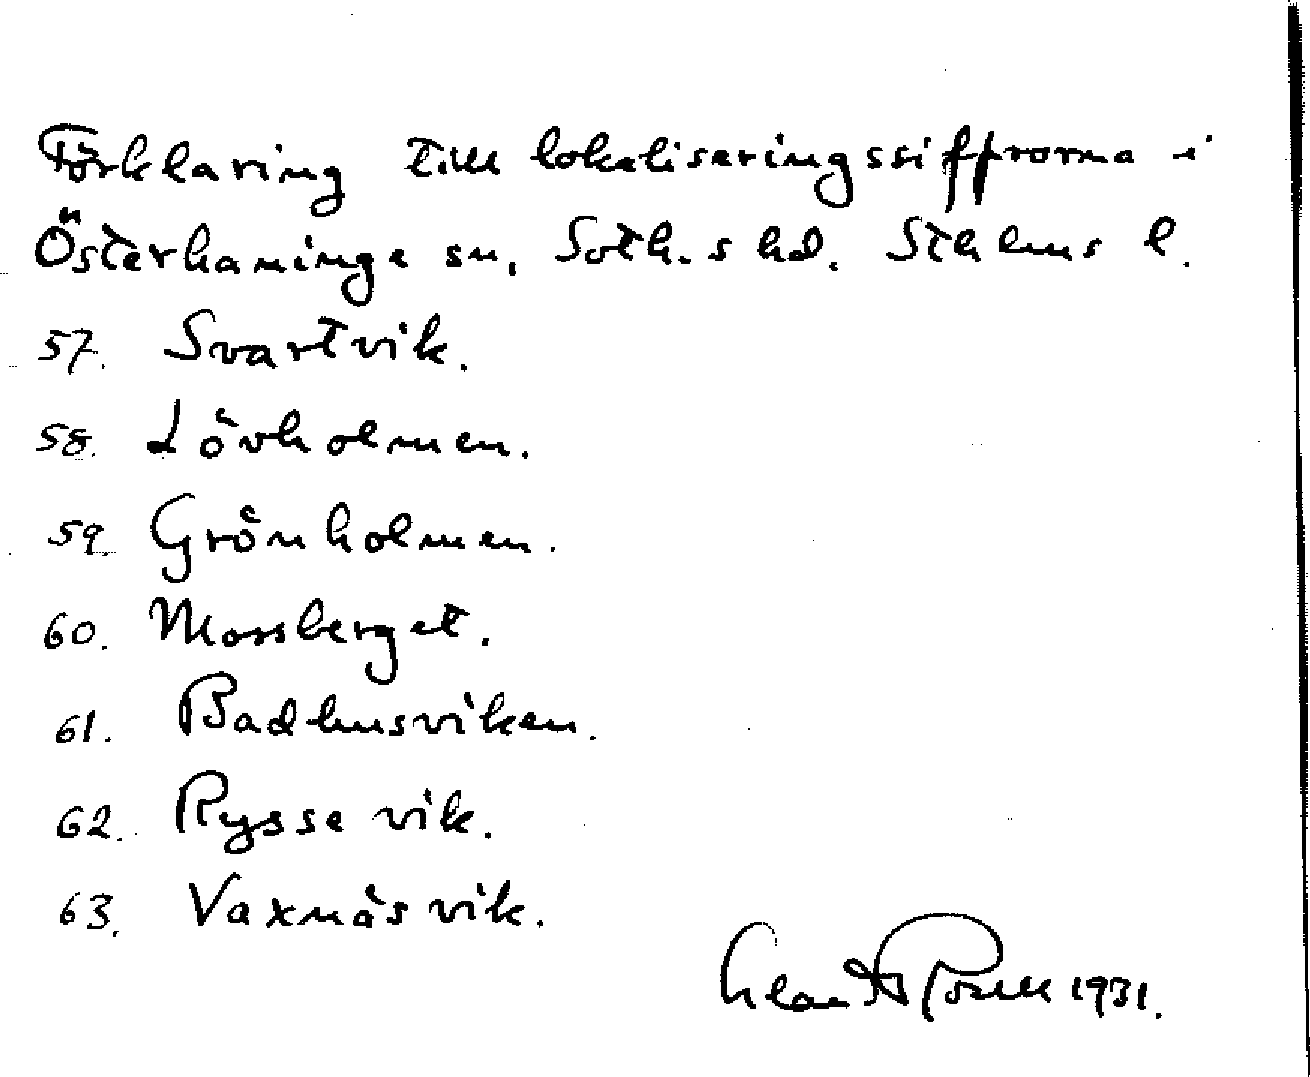 Förklaring till lokaliseringssiffrorna i
Österhaninge sn, Soth.s hd. Sthlms l.
57. Svartvik.
58. Lövholmen.
59. Grönholmen.
60. Mossberget.
61. Badhusviken.
62. Ryssevik.
63. Vaxnäsvik.
1931.